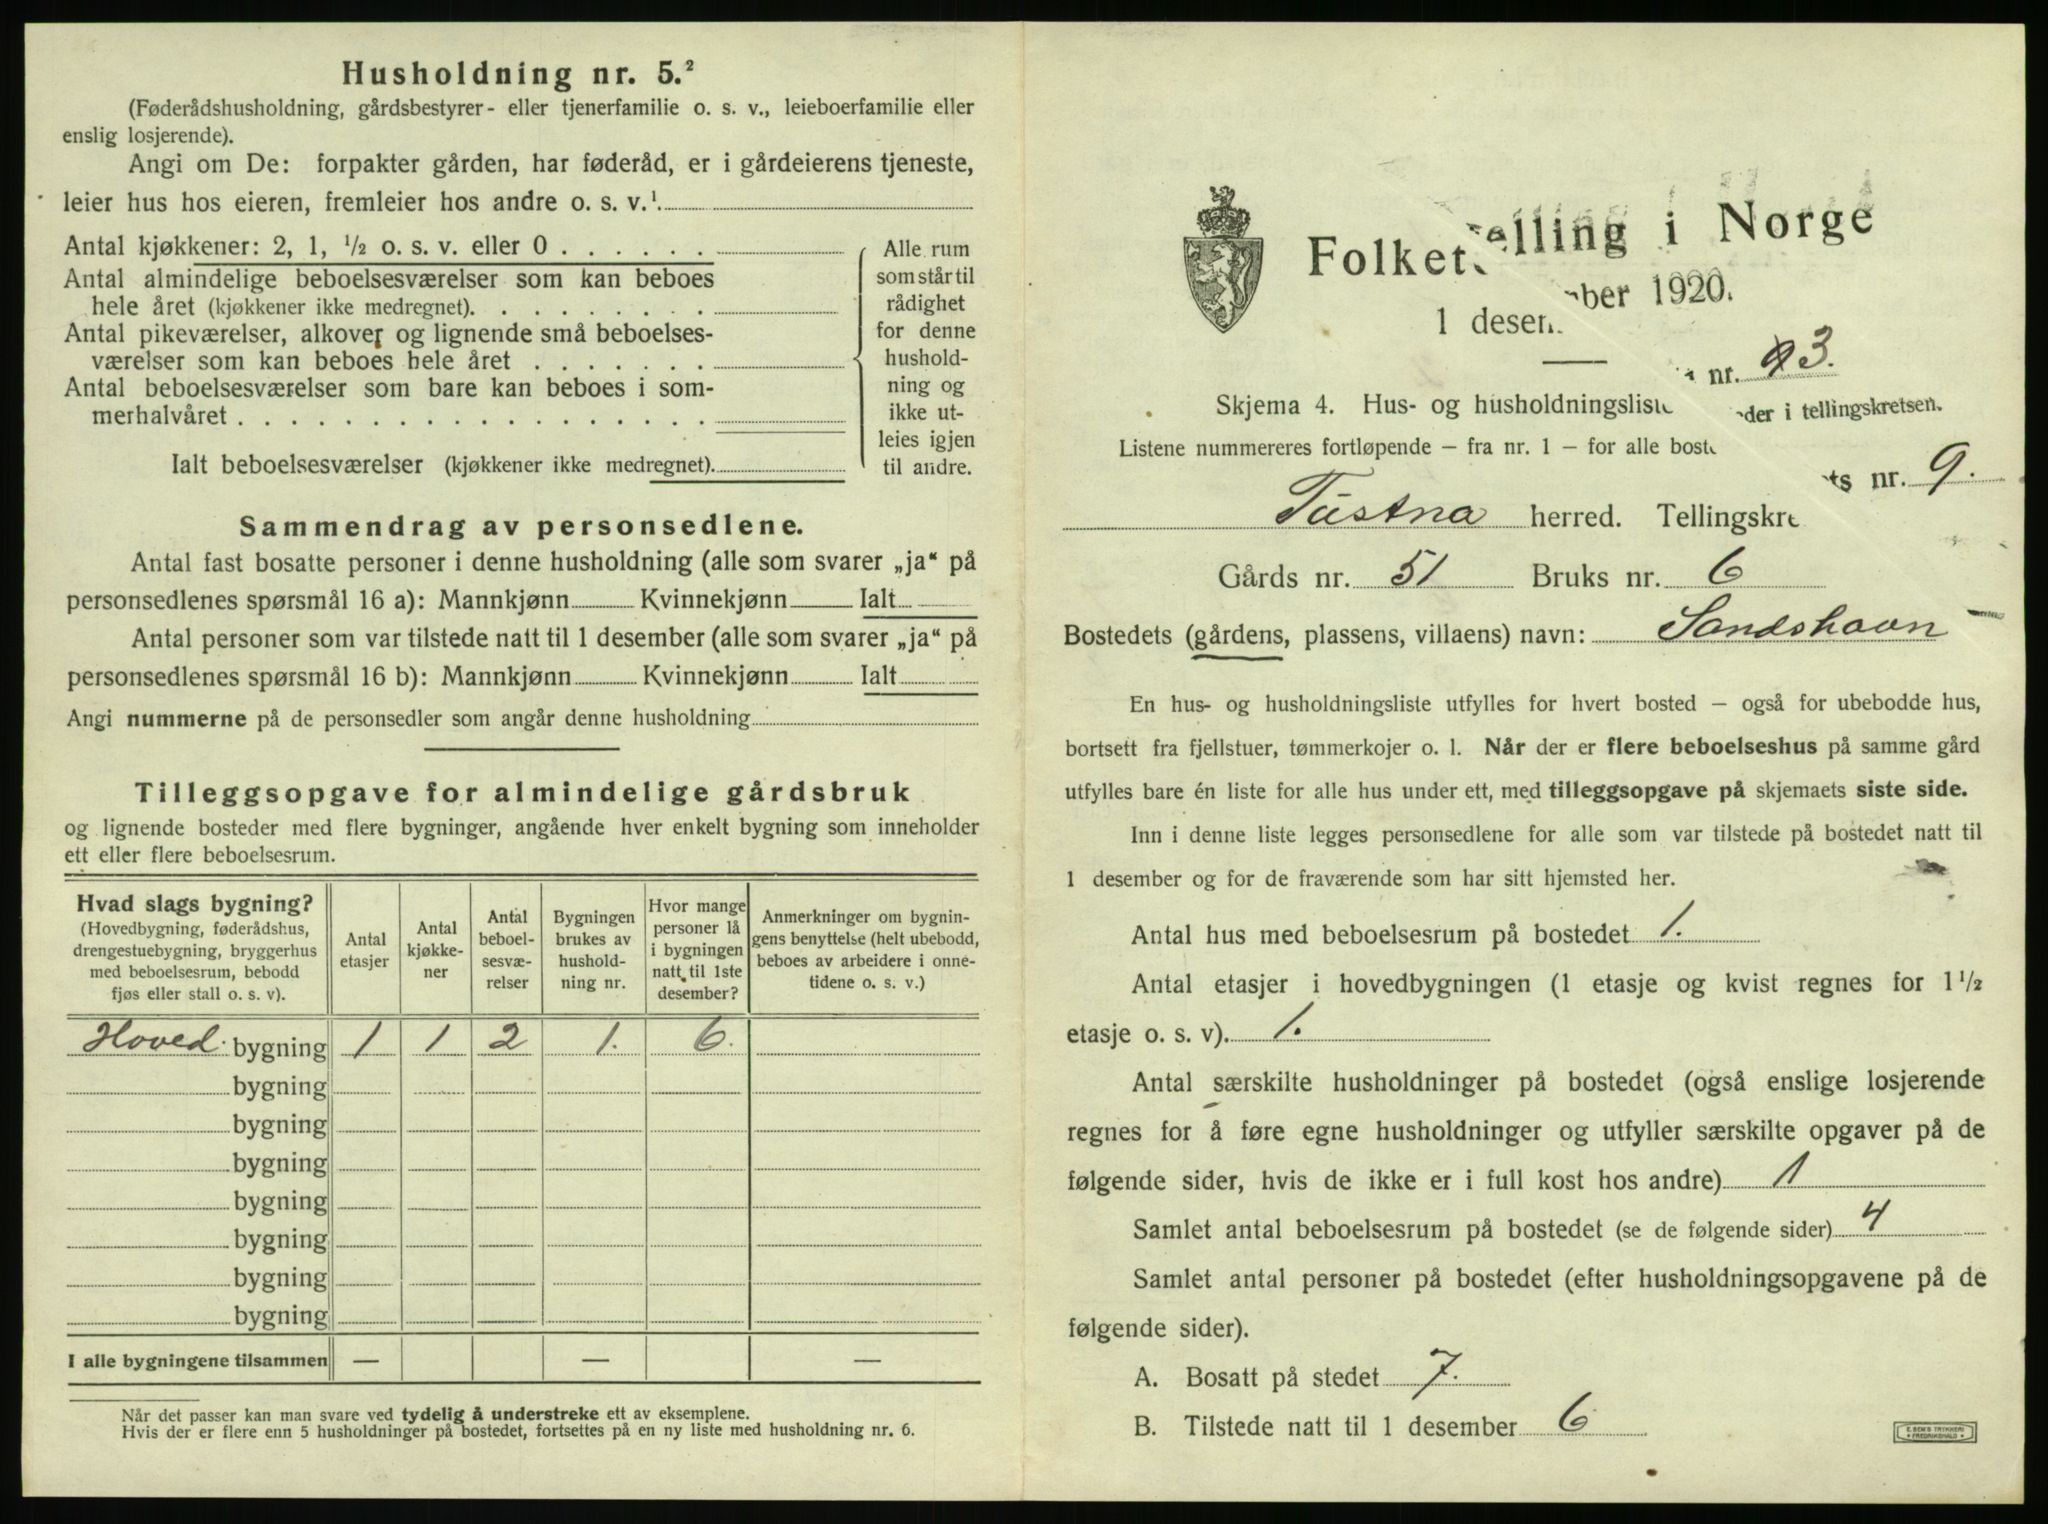 Husholdning nr. 5.²
(Føderådshusholdning, gårdsbestyrer- eller tjenerfamilie o. s. v., leieboerfamilie eller
enslig losjerende).
Angi om De: forpakter gården, har føderåd, er i gårdeierens tjeneste,
leier hus hos eieren, fremleier hos andre o. s. v.¹
Antal kjøkkener: 2, 1, ½ o. s. v. eller 0
Antal almindelige beboelsesværelser som kan beboes
hele året (kjøkkener ikke medregnet).
Antal pikeværelser, alkover og lignende små beboelses-
værelser som kan beboes hele året
Antal beboelsesværelser som bare kan beboes i som-
merhalvåret
Ialt beboelsesværelser (kjøkkener ikke medregnet).
Alle rum
som står til
rådighet
for denne
hushold-
ning og
ikke ut-
leies igjen
til andre.
Sammendrag av personsedlene.
Antal fast bosatte personer i denne husholdning (alle som svarer „ja“ på
personsedlenes spørsmål 16 a): Mannkjønn Kvinnekjønn Ialt
Antal personer som var tilstede natt til 1 desember (alle som svarer „ja“ på
personsedlenes spørsmål 16 b): Mannkjønn Kvinnekjønn Ialt
Angi nummerne på de personsedler som angår denne husholdning
Tilleggsopgave for almindelige gårdsbruk
og lignende bosteder med flere bygninger, angående hver enkelt bygning som inneholder
ett eller flere beboelsesrum.
Hvad slags bygning?
(Hovedbygning, føderådshus,
drengestuebygning, bryggerhus
med beboelsesrum, bebodd
fjøs eller stall o. s. v).
Antal
etasjer
Antal
kjøkke-
ner
Antal
beboel-
sesvæ-
relser
Bygningen
brukes av
hushold-
ning nr.
Hvor mange
personer lå
i bygningen
natt til 1ste
desember?
Anmerkninger om bygnin-
gens benyttelse (helt ubebodd,
beboes av arbeidere i onne-
tidene o. s. v.)
Hoved bygning 1 1 2 1. 6.
bygning
bygning
bygning
bygning
bygning
bygning
bygning
I alle bygningene tilsammen — — —
Når det passer kan man svare ved tydelig å understreke ett av eksemplene.
Hvis der er flere enn 5 husholdninger på bostedet, fortsettes på en ny liste med husholdning nr. 6.
Folketelling i Norge
1 desember 1920.
Skjema 4. Hus- og husholdningsliste nr. 3.
Listene nummereres fortløpende – fra nr. 1 – for alle bosteder i tellingskretsen.
Tustna herred. Tellingskrets nr. 9.
Gårds nr. 51 Bruks nr. 6
Bostedets (gårdens, plassens, villaens) navn: Sandshavn
En hus- og husholdningsliste utfylles for hvert bosted – også for ubebodde hus,
bortsett fra fjellstuer, tømmerkojer o. l. Når der er flere beboelseshus på samme gård
utfylles bare én liste for alle hus under ett, med tilleggsopgave på skjemaets siste side.
Inn i denne liste legges personsedlene for alle som var tilstede på bostedet natt til
1 desember og for de fraværende som har sitt hjemsted her.
Antal hus med beboelsesrum på bostedet 1.
Antal etasjer i hovedbygningen (1 etasje og kvist regnes for 1½
etasje o. s. v). 1.
Antal særskilte husholdninger på bostedet (også enslige losjerende
regnes for å føre egne husholdninger og utfyller særskilte opgaver på de
følgende sider, hvis de ikke er i full kost hos andre) 1
Samlet antal beboelsesrum på bostedet (se de følgende sider) 4
Samlet antal personer på bostedet (efter husholdningsopgavene på de
følgende sider).
A. Bosatt på stedet 7.
B. Tilstede natt til 1 desember 6
E. SEM'S TRYKKERI
FREDRIKSHALD